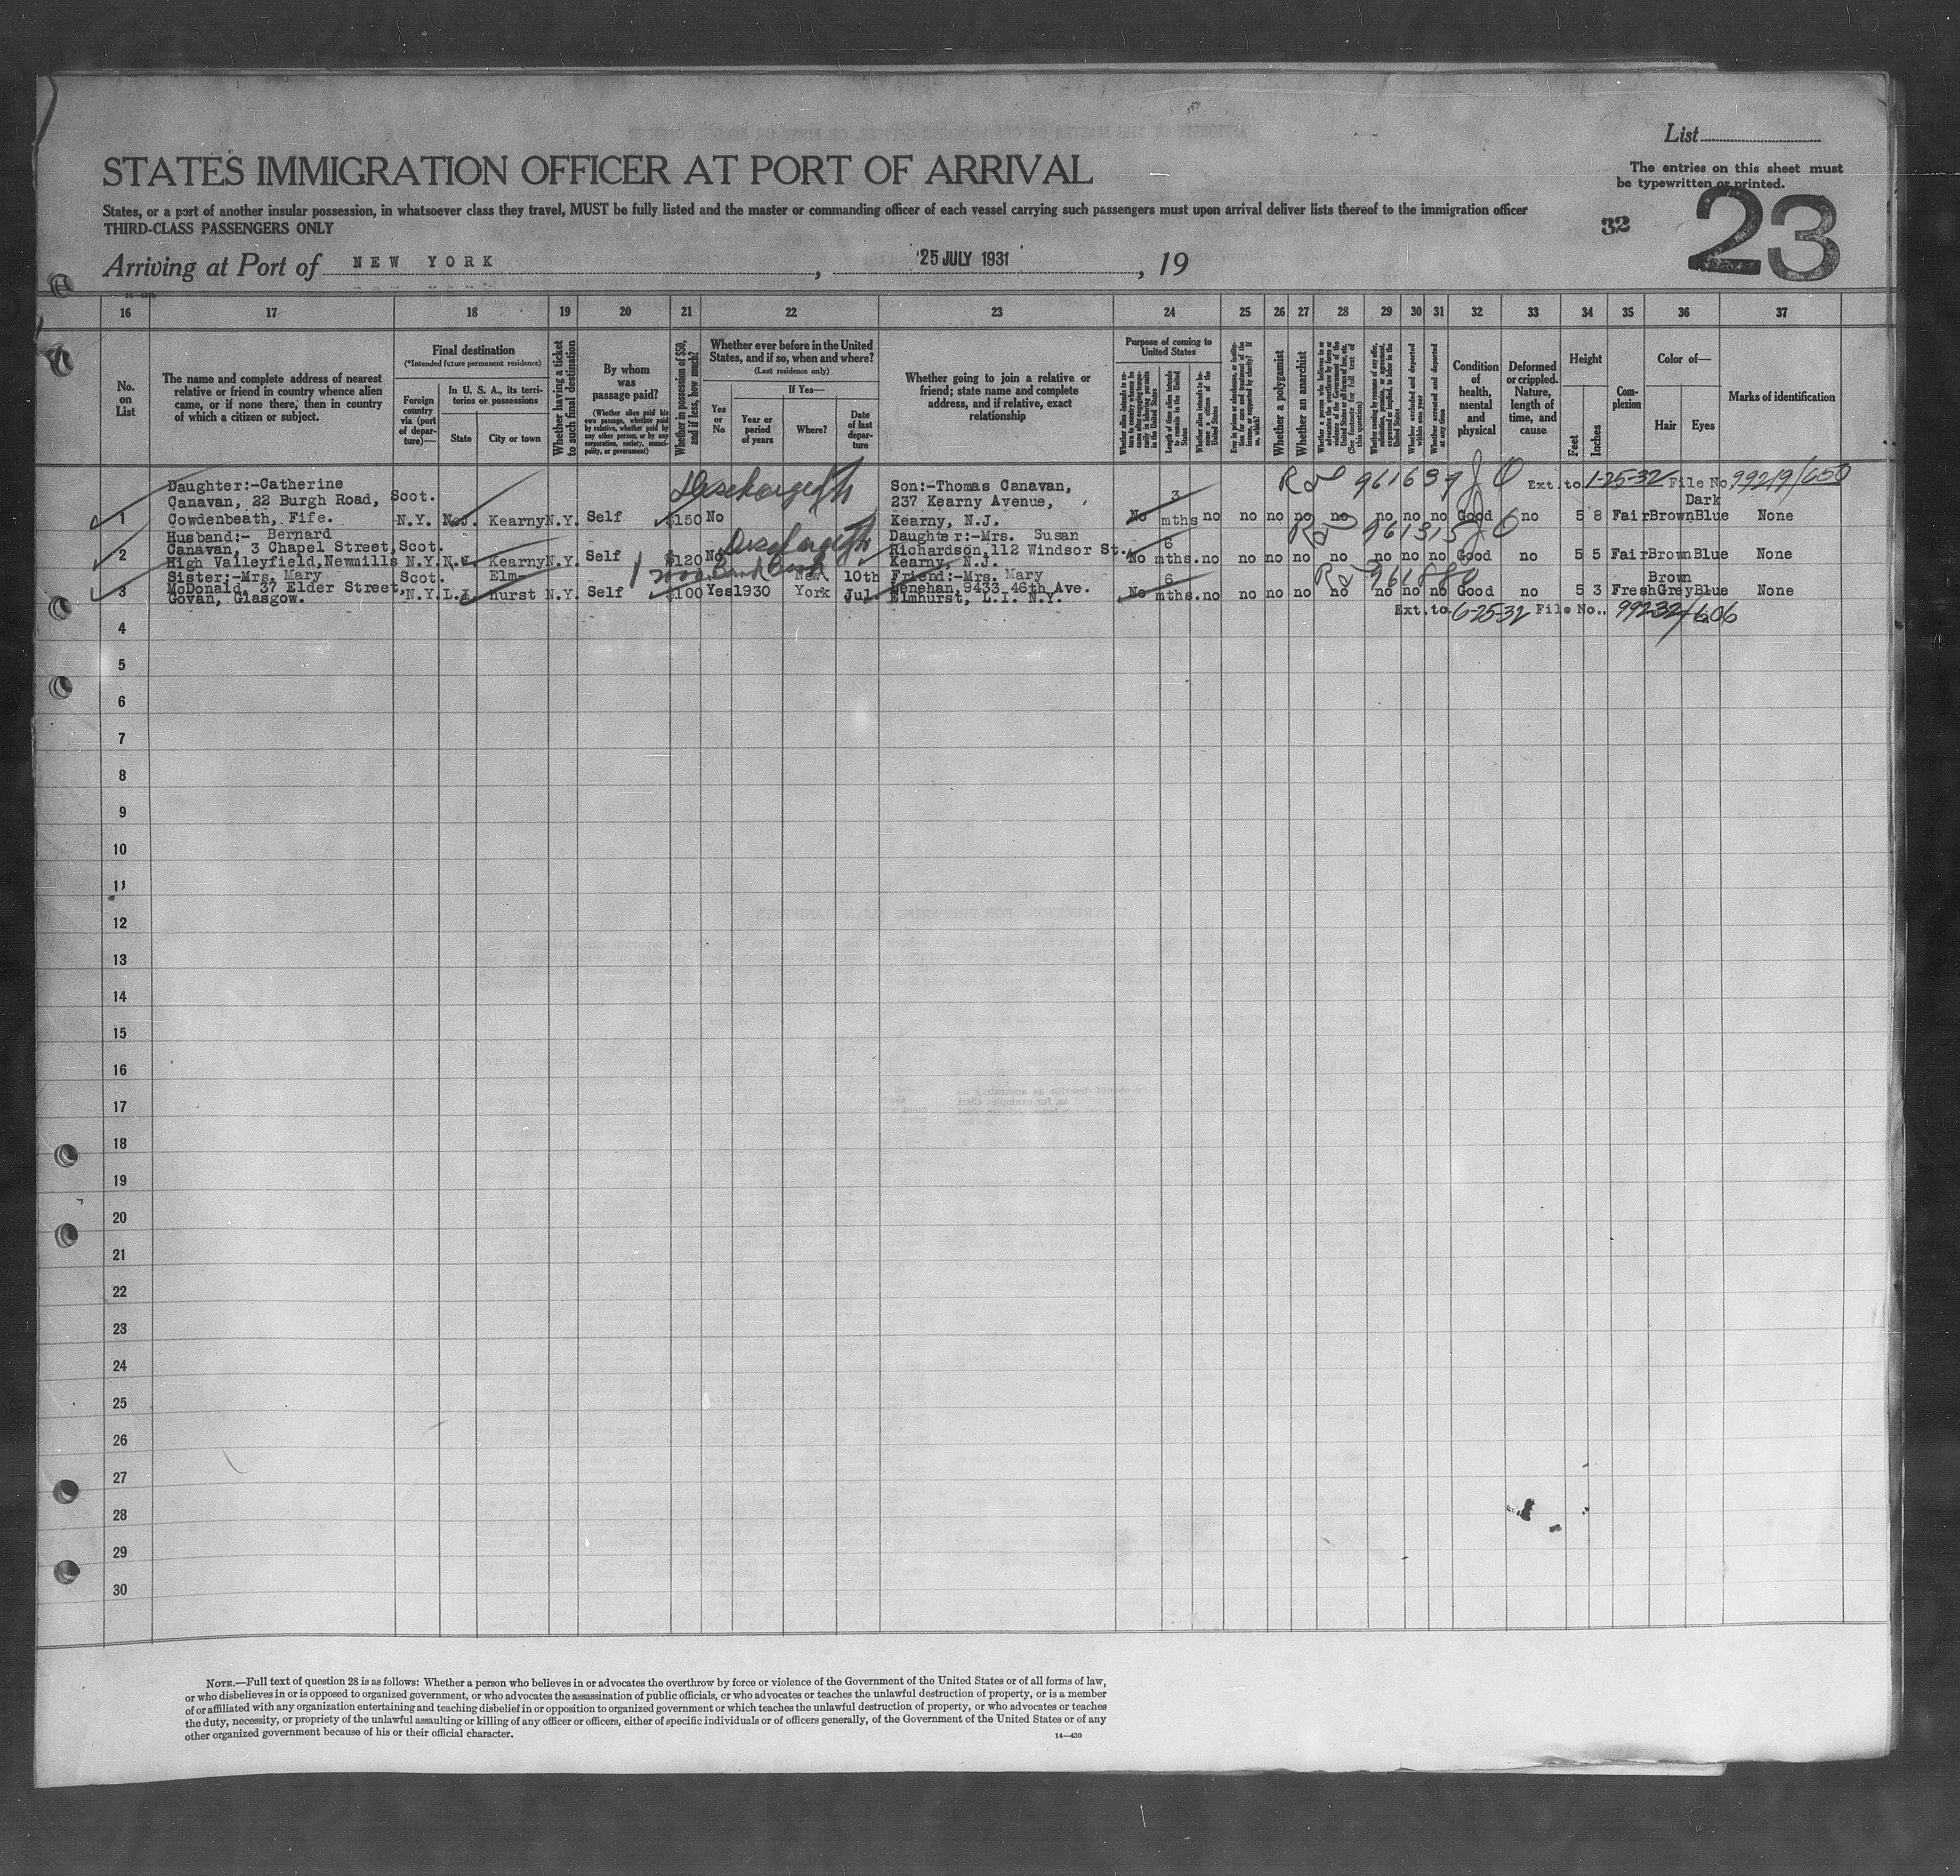 List
The entries on this sheet must
be typewritten or printed.
STATES IMMIGRATION OFFICER AT PORT OF ARRIVAL
States, or a port of another insular possession, in whatsoever class they travel, MUST be fully listed and the master or commanding officer of each vessel carrying such passengers must upon arrival deliver lists thereof to the immigration officer
THIRD-CLASS PASSENGERS ONLY
32
23
Arriving at Port of NEW YORK, 25 JULY 1931, 19
16 17 18 19 20 21 22 23 24 25 26 27 28 29 30 31 32 33 34 35 36 37
No. on List
The name and complete address of nearest
relative or friend in country whence alien
came, or if none there, then in country
of which a citizen or subject.
Final destination
(*Intended future permanent residence)
Foreign
country
via (port
of depar-
ture)—
In U. S. A., its terri-
tories or possessions
State
City or town
Whether having a ticket
to such final destination
By whom
was
passage paid?
(Whether alien paid his
own passage, whether paid
by relative, whether paid by
any other person, or by any
corporation, society, munici-
pality, or government)
Whether in possession of $50,
and if less, how much?
Whether ever before in the United
States, and if so, when and where?
(Last residence only)
Yes
or
No
If Yes—
Year or
period
of years
Where?
Date
of last
depar-
ture
Whether going to join a relative or
friend; state name and complete
address, and if relative, exact
relationship
Purpose of coming to
United States
Length of time alien intends
to remain in the United
States
Whether alien intends to be-
come a citizen of the
United States
Whether a polygamist
Whether an anarchist
Whether excluded and deported
within one year
Whether arrested and deported
at any time
Condition
of
health,
mental
and
physical
Deformed
or crippled.
Nature,
length of
time, and
cause
Height
Feet
Inches
Com-
plexion
Color of—
Hair
Eyes
Marks of identification
Daughter:-Catherine
Canavan, 22 Burgh Road,
Cowdenbeath, Fife.
Scot.
1 N.Y. N.J. Kearny N.Y. Self $150 No
Discharged
Son:-Thomas Canavan,
237 Kearny Avenue,
Kearny, N.J.
No 3 mths no no no no no no no no Good no 5 8 Fair Dark Brown Blue None
961639
Ext. to 1-25-32 File No. 99219/650
Husband:- Bernard
Canavan, 3 Chapel Street,
High Valleyfield, Newmills
Scot.
2 N.Y. N.J. Kearny N.Y. Self $120 No
Discharged
Daughter:-Mrs. Susan
Richardson, 112 Windsor St.,
Kearny, N.J.
No 6 mths. no no no no no no no no Good no 5 5 Fair Brown Blue None
961315
Sister:-Mrs. Mary
McDonald, 37 Elder Street,
Govan, Glasgow.
Scot.
3 N.Y. L.I. Elm-
hurst N.Y. Self $100 Yes 1930 New York 10th Jul
Friend:-Mrs. Mary
Lenehan, 9433 46th Ave.
Elmhurst, L.I. N.Y.
No 6 mths. no no no no no no no no Good no 5 3 Fresh Brown Grey Blue None
961880
Ext. to 6-25-32 File No. 992-32/606
4
5
6
7
8
9
10
11
12
13
14
15
16
17
18
19
20
21
22
23
24
25
26
27
28
29
30
NOTE.—Full text of question 28 is as follows: Whether a person who believes in or advocates the overthrow by force or violence of the Government of the United States or of all forms of law,
or who disbelieves in or is opposed to organized government, or who advocates the assassination of public officials, or who advocates or teaches the unlawful destruction of property, or is a member
of or affiliated with any organization entertaining and teaching disbelief in or opposition to organized government or which teaches the unlawful destruction of property, or who advocates or teaches
the duty, necessity, or propriety of the unlawful assaulting or killing of any officer or officers, either of specific individuals or of officers generally, of the Government of the United States or of any
other organized government because of his or their official character.
14—430